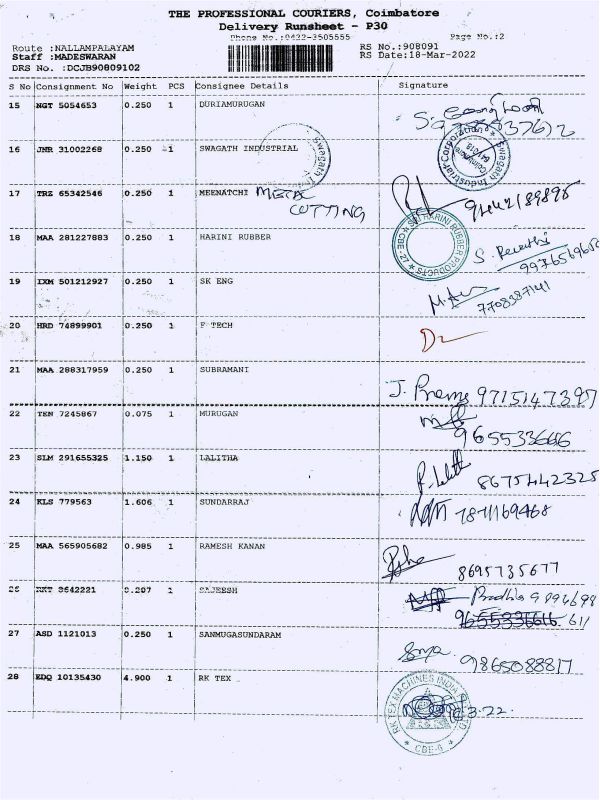 THE PROFESSIONAL COURIERS, Coimbatore
Delivery Runsheet - P30
Phone No.:0422-3505555
Page No.:2
Route :NALLAMPALAYAM
RS No.:908091
Staff :MADESWARAN
RS Date:18-Mar-2022
DRS No. :DCJB90809102
S No Consignment No Weight PCS Consignee Details Signature
15 NGT 5054653 0.250 1 DURIAMURUGAN
16 JMR 31002268 0.250 1 SWAGATH INDUSTRIAL
Swagath
Swagath Industrial Corporation
17 TRZ 65342546 0.250 1 MEENATCHI METAL
CUTTING
9442189895
18 MAA 281227883 0.250 1 HARINI RUBBER
SRI HARINI RUBBER PRODUCTS CBE-27
S. Revathi
9976569656
19 IXM 501212927 0.250 1 SK ENG
7708387141
20 HRD 74899901 0.250 1 F TECH
21 MAA 288317959 0.250 1 SUBRAMANI
J. Prema 9715147397
22 TEN 7245867 0.075 1 MURUGAN
9655333666
23 SLM 291655325 1.150 1 LALITHA
P. Lalitha 8675442325
24 KLS 779563 1.606 1 SUNDARRAJ
7871169468
25 MAA 565905682 0.985 1 RAMESH KANAN
8695735677
26 RKT 3642221 0.207 1 SAJEESH
611
27 ASD 1121013 0.250 1 SANMUGASUNDARAM
9865088817
28 EDQ 10135430 4.900 1 RK TEX
RK TEX MACHINES INDIA
CBE-6